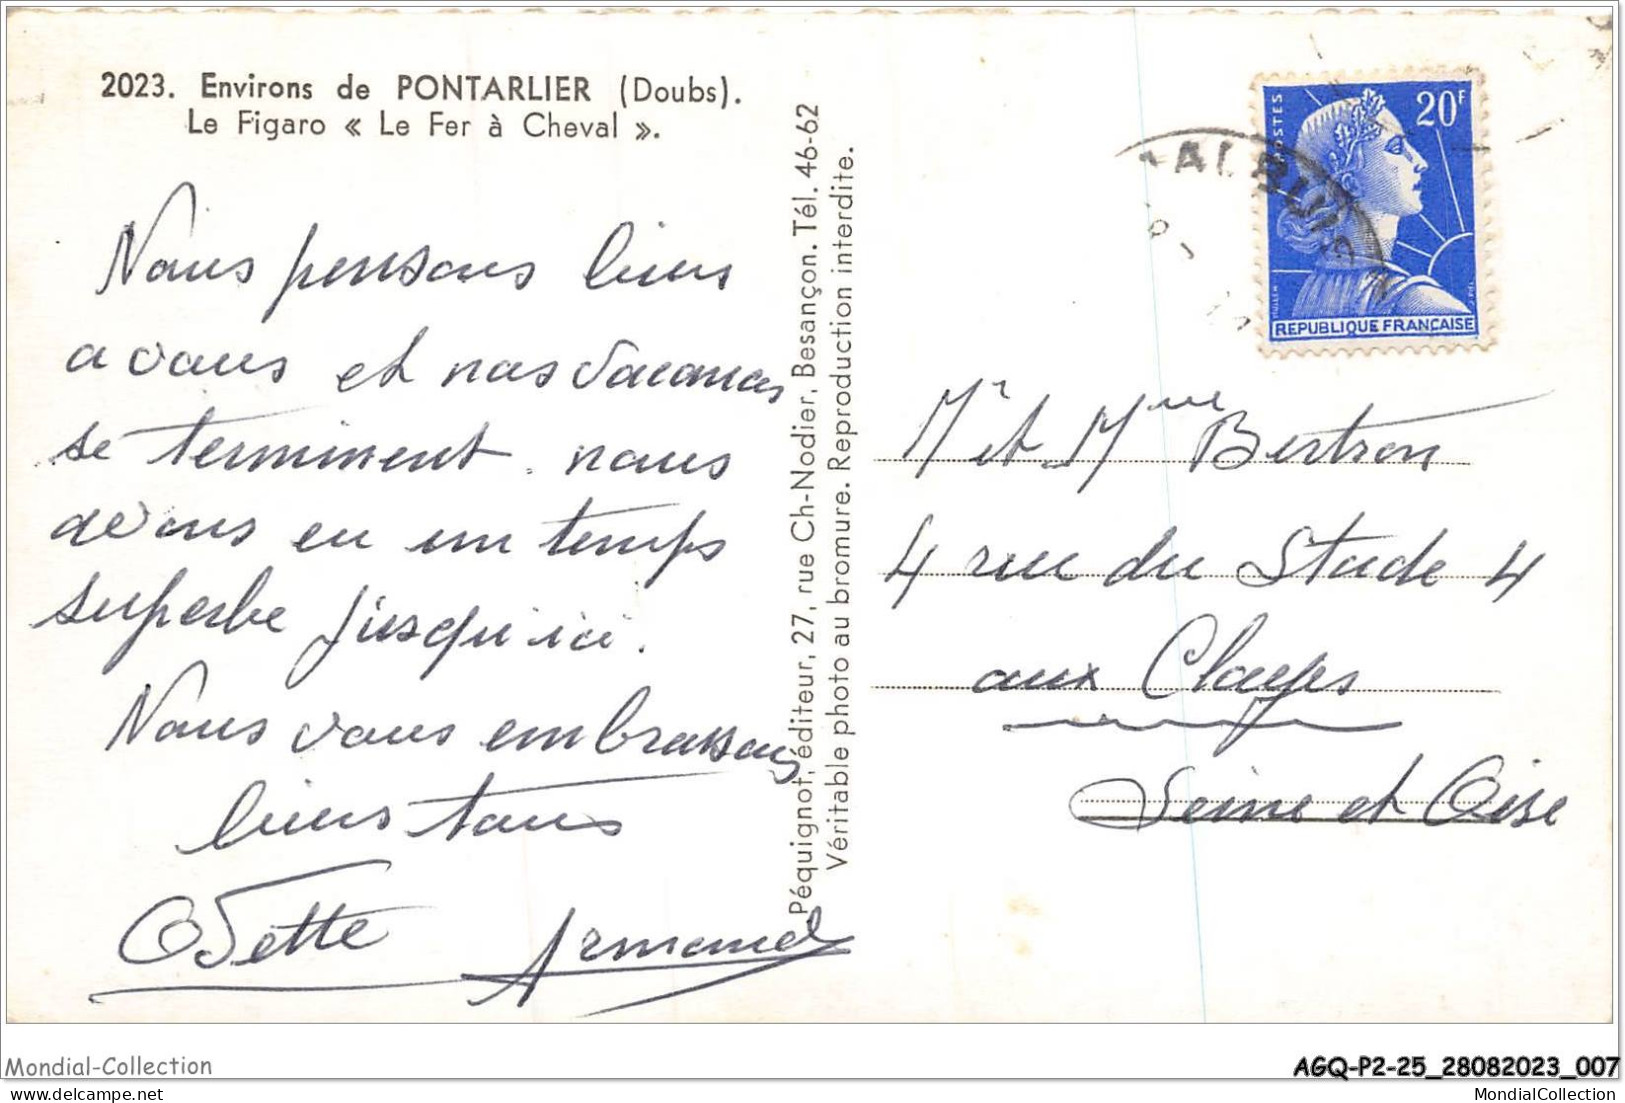 2023. Environs de PONTARLIER (Doubs).
Le Figaro « Le Fer à Cheval ».
Nous pensons bien
a vous et nos vacances
se terminent. nous
avons eu un temps
superbe jusqu'ici.
Nous vous embrassons
biens tous
Odette Armand
Péquignot, éditeur, 27, rue Ch-Nodier, Besançon. Tél. 46-62
Véritable photo au bromure. Reproduction interdite.
POSTES
20F
MULLER
J.PIEL
REPUBLIQUE FRANÇAISE
Mr et Mme Bertron
4 rue du Stade 4
aux Clayes
Seine et Oise
Mondial-Collection
AGQ-P2-25_28082023_007
delcampe.net
MondialCollection